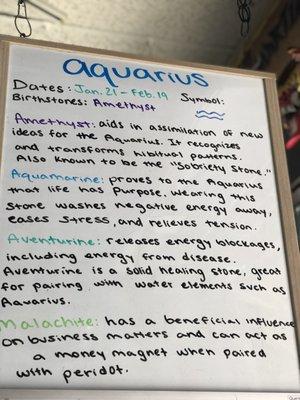 aquarius
Dates: Jan. 21 - Feb. 19
Birthstones: Amethyst Symbol:
Amethyst: aids in assimilation of new
ideas for the Aquarius. It recognizes
and transforms hibitual patterns.
Also known to be the "Sobriety Stone."
Aquamarine: proves to the Aquarius
that life has purpose. Wearing this
stone washes negative energy away,
eases stress, and relieves tension.
Aventurine: releases energy blockages,
including energy from disease.
Aventurine is a solid healing stone, great
for pairing with water elements such as
Aquarius.
Malachite: has a beneficial influence
on business matters and can act as
a money magnet when paired
with peridot.